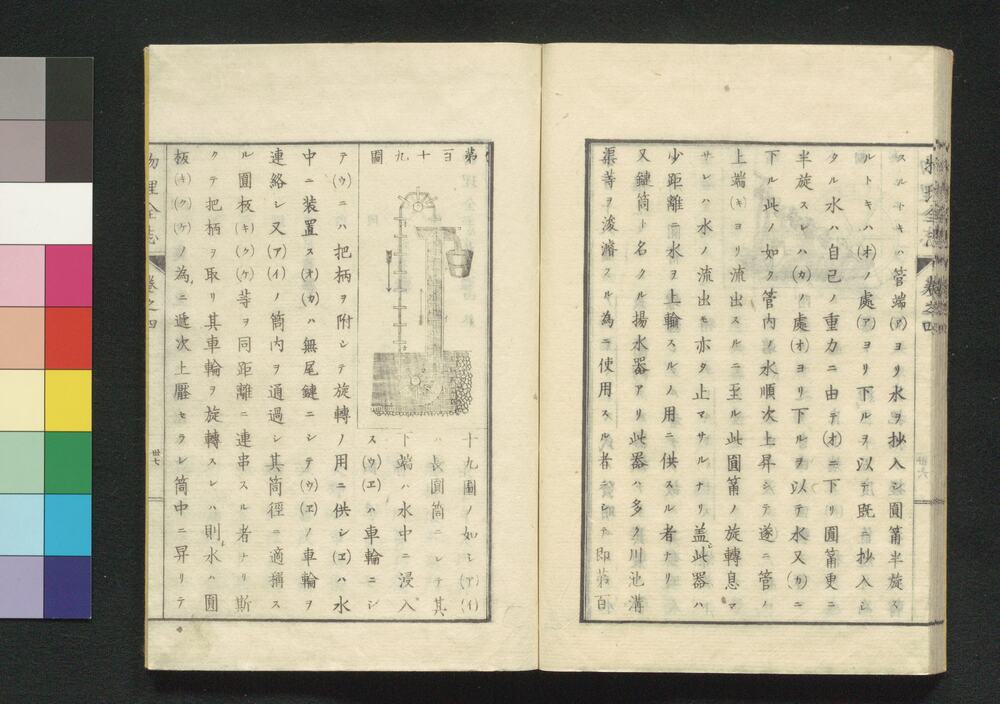 スルトキハ管端(ア)ヨリ水ヲ抄入シ圓筩半旋ス
ルトキハ(オ)ノ處(ア)ヨリ下ルヲ以テ既ニ抄入シ
タル水ハ自己ノ重力ニ由テ(オ)ニ下リ圓筩更ニ
半旋スレハ(カ)ノ處(オ)ヨリ下ルヲ以テ水又(カ)ニ
下ル此ノ如ク管内ノ水順次上昇シテ遂ニ管ノ
上端(キ)ヨリ流出スルニ至ル此圓筩ノ旋轉息マ
サレハ水ノ流出モ亦タ止マサルナリ盖此器ハ
少距離ニ水ヲ上輸スルノ用ニ供スル者ナリ
又鏈筒ト名クル揚水器アリ此器ハ多ク川池溝
渠等ヲ浚濬スル為ニ使用スル者ニシテ即第百
物理全志
卷之四
卅六
第百十九圖
十九圖ノ如シ(ア)(イ)
ハ長圓筒ニシテ其
下端ハ水中ニ浸入
ス(ウ)(エ)ハ車輪ニシ
テ(ウ)ニハ把柄ヲ附シテ旋轉ノ用ニ供シ(エ)ハ水
中ニ装置ス(オ)(カ)ハ無尾鏈ニシテ(ウ)(エ)ノ車輪ヲ
連絡シ又(ア)(イ)ノ筒内ヲ通過シ其筒徑ニ適稱ス
ル圓板(キ)(ク)(ケ)等ヲ同距離ニ連串スル者ナリ斯
クテ把柄ヲ取リ其車輪ヲ旋轉スレハ則水ハ圓
板(キ)(ク)(ケ)ノ為ニ遞次上壓セラレ筒中ニ昇リテ
物理全志
卷之四
卅七